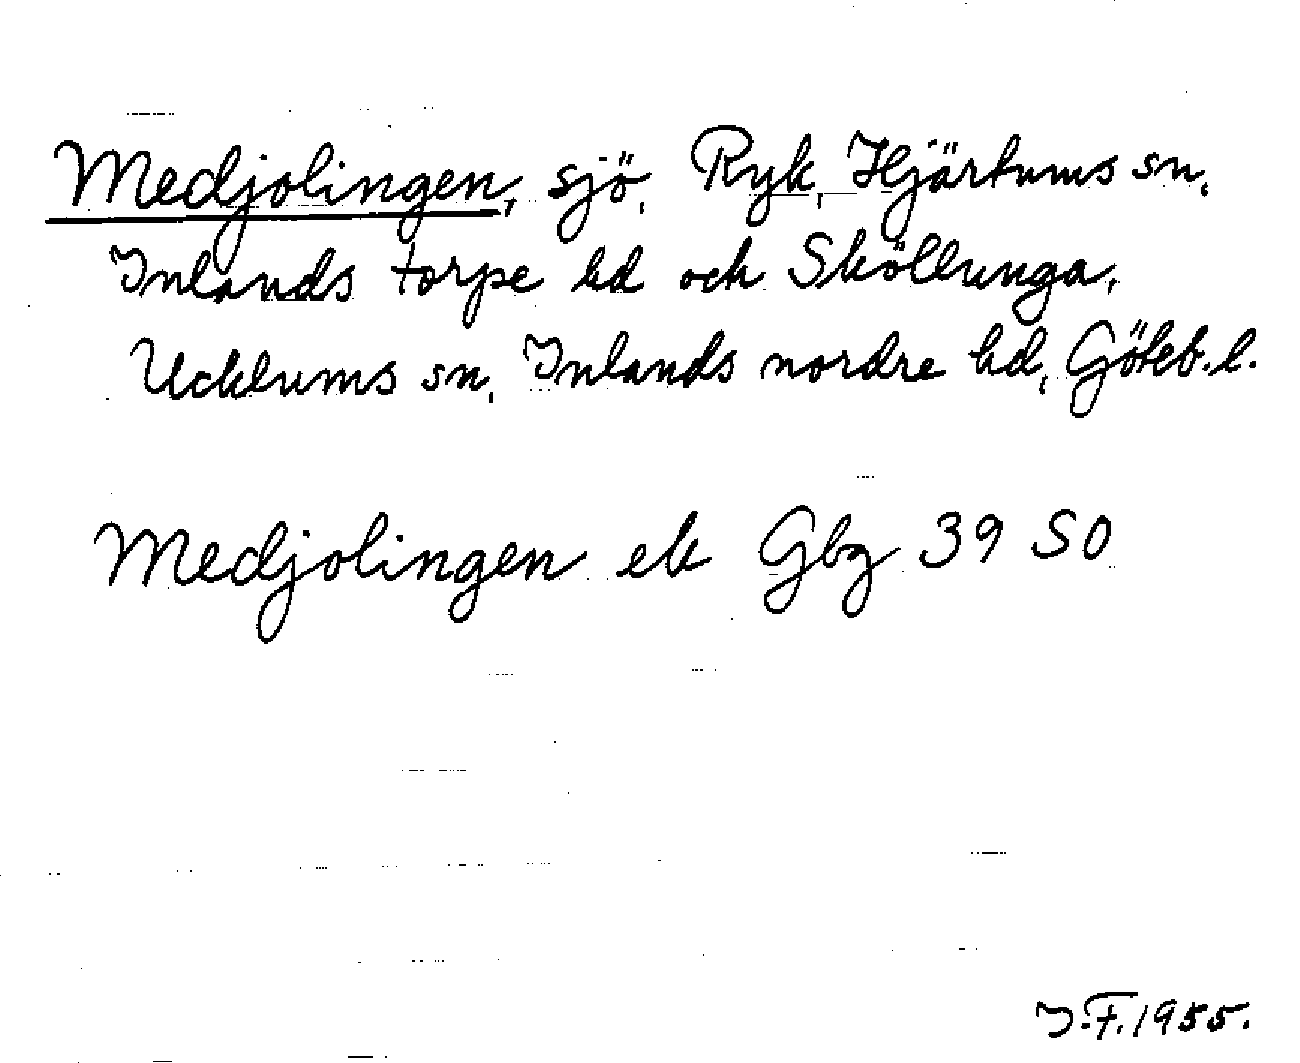 Medjolingen, sjö, Ryk, Hjärtums sn,
Inlands torpe hd och Sköllunga,
Ucklums sn, Inlands nordre hd, Göteb.l.
Medjolingen ek Gbg 39 SO
I.F. 1955.